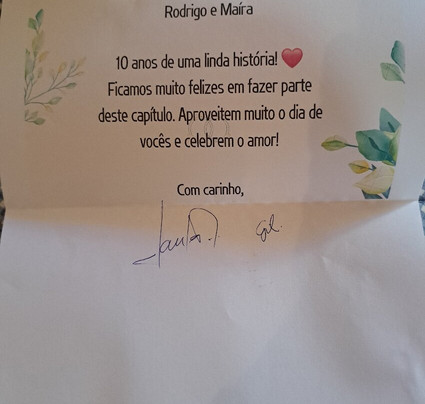 Rodrigo e Maíra
10 anos de uma linda história! ❤️
Ficamos muito felizes em fazer parte
deste capítulo. Aproveitem muito o dia de
vocês e celebrem o amor!
Com carinho,